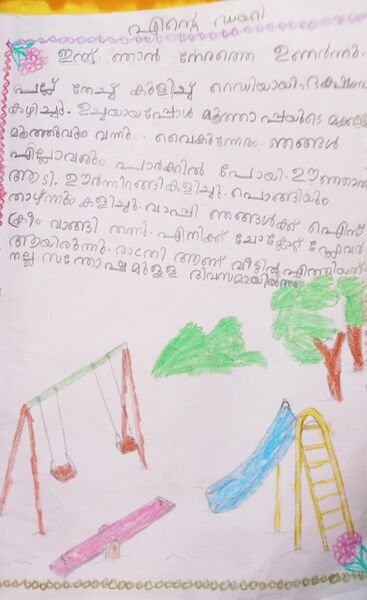 എന്റെ ഡയറി
ഇന്ന് ഞാൻ നേരത്തെ ഉണർന്നു.
പല്ല് തേച്ചു കുളിച്ച് റെഡിയായി. ഭക്ഷണം
കഴിച്ചു. ഉച്ചയായപ്പോൾ മൂത്താപ്പയുടെ മക്കളും
മൂത്തമ്മയും വന്നു. വൈകുന്നേരം ഞങ്ങൾ
എല്ലാവരും പാർക്കിൽ പോയി. ഊഞ്ഞാൽ
ആടി. ഊർന്നിറങ്ങി കളിച്ചു. പൊങ്ങിയും
താഴ്ന്നും കളിച്ചു. വാപ്പി ഞങ്ങൾക്ക് ഐസ്
ക്രീം വാങ്ങി തന്നു. എനിക്ക് ചോക്ലേറ്റ് ഫ്ലേവർ
ആയിരുന്നു. രാത്രി ആണ് വീട്ടിൽ എത്തിയത്.
നല്ല സന്തോഷമുള്ള ദിവസമായിരുന്നു